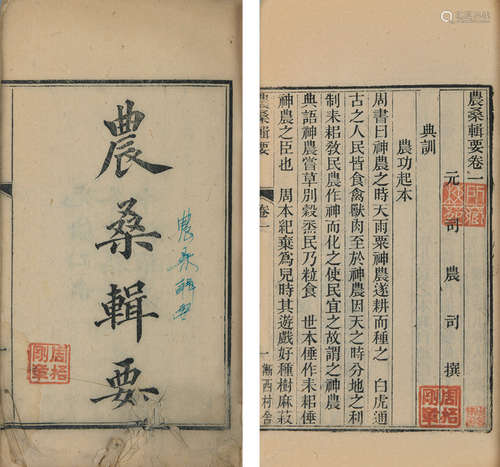 農桑輯要
農桑輯要
農桑輯要卷一
元 司農司撰
典訓
農功起本
周書曰神農之時天雨粟神農遂耕而種之 白虎通
古之人民皆食禽獸肉至於神農因天之時分地之利
制耒耜教民農作神而化之使民宜之故謂之神農
典語神農嘗草別穀烝民乃粒食 世本倕作耒耜倕
神農之臣也 周本紀棄爲兒時其遊戲好種樹麻菽
農桑輯要 卷一 一 漸西村舍